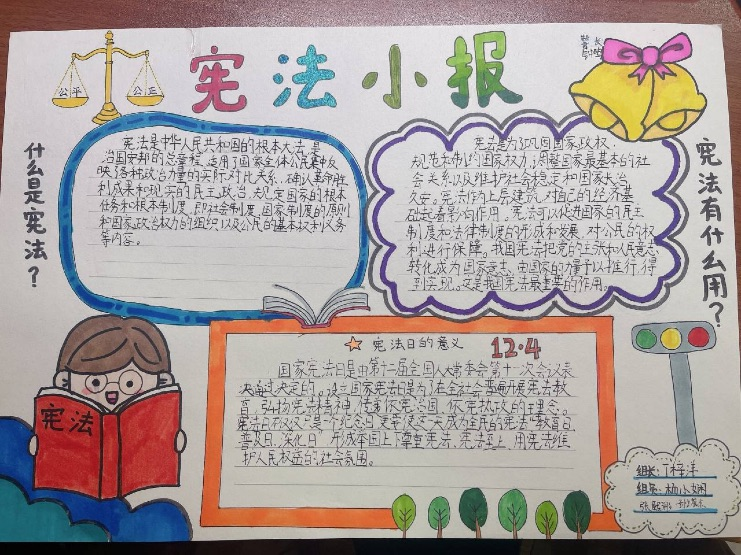 宪法小报
公平
公正
警长
什么是宪法？
宪法是中华人民共和国的根本大法,是
治国安邦的总章程,适用于国家全体公民,集中反
映各种政治力量的实际对比关系,确认革命胜
利成果和现实的民主政治,规定国家的根本
任务和根本制度,即社会制度,国家制度的原则
和国家政权的组织以及公民的基本权利义务
等内容。
宪法有什么用？
宪法是为了巩固国家政权.
规范和制约国家权力,调整国家最基本的社
会关系以及维护社会稳定和国家长治
久安。宪法作为上层建筑,对自己的经济基
础起着影响作用,宪法可以促进国家的民主
制度和法律制度的形成和发展,对公民的权
利进行保障。我国宪法把党的主张和人民意志
转化成为国家意志,由国家的力量予以推行,得
到实现。这是我国宪法最重要的作用。
宪法日的意义
12·4
国家宪法日是由第十二届全国人大常委会第十一次会议表
决通过决定的，设立国家宪法日是为了在全社会普遍开展宪法教
育，弘扬宪法精神，
宪法日不仅仅是一个纪念日,更要使这一天成为全民的宪法“教育日、
普及日、深化日”，形成举国上下尊重宪法、宪法至上、用宪法维
护人民权益的社会氛围。
宪法
组长:丁梓洋
组员:杨小娴